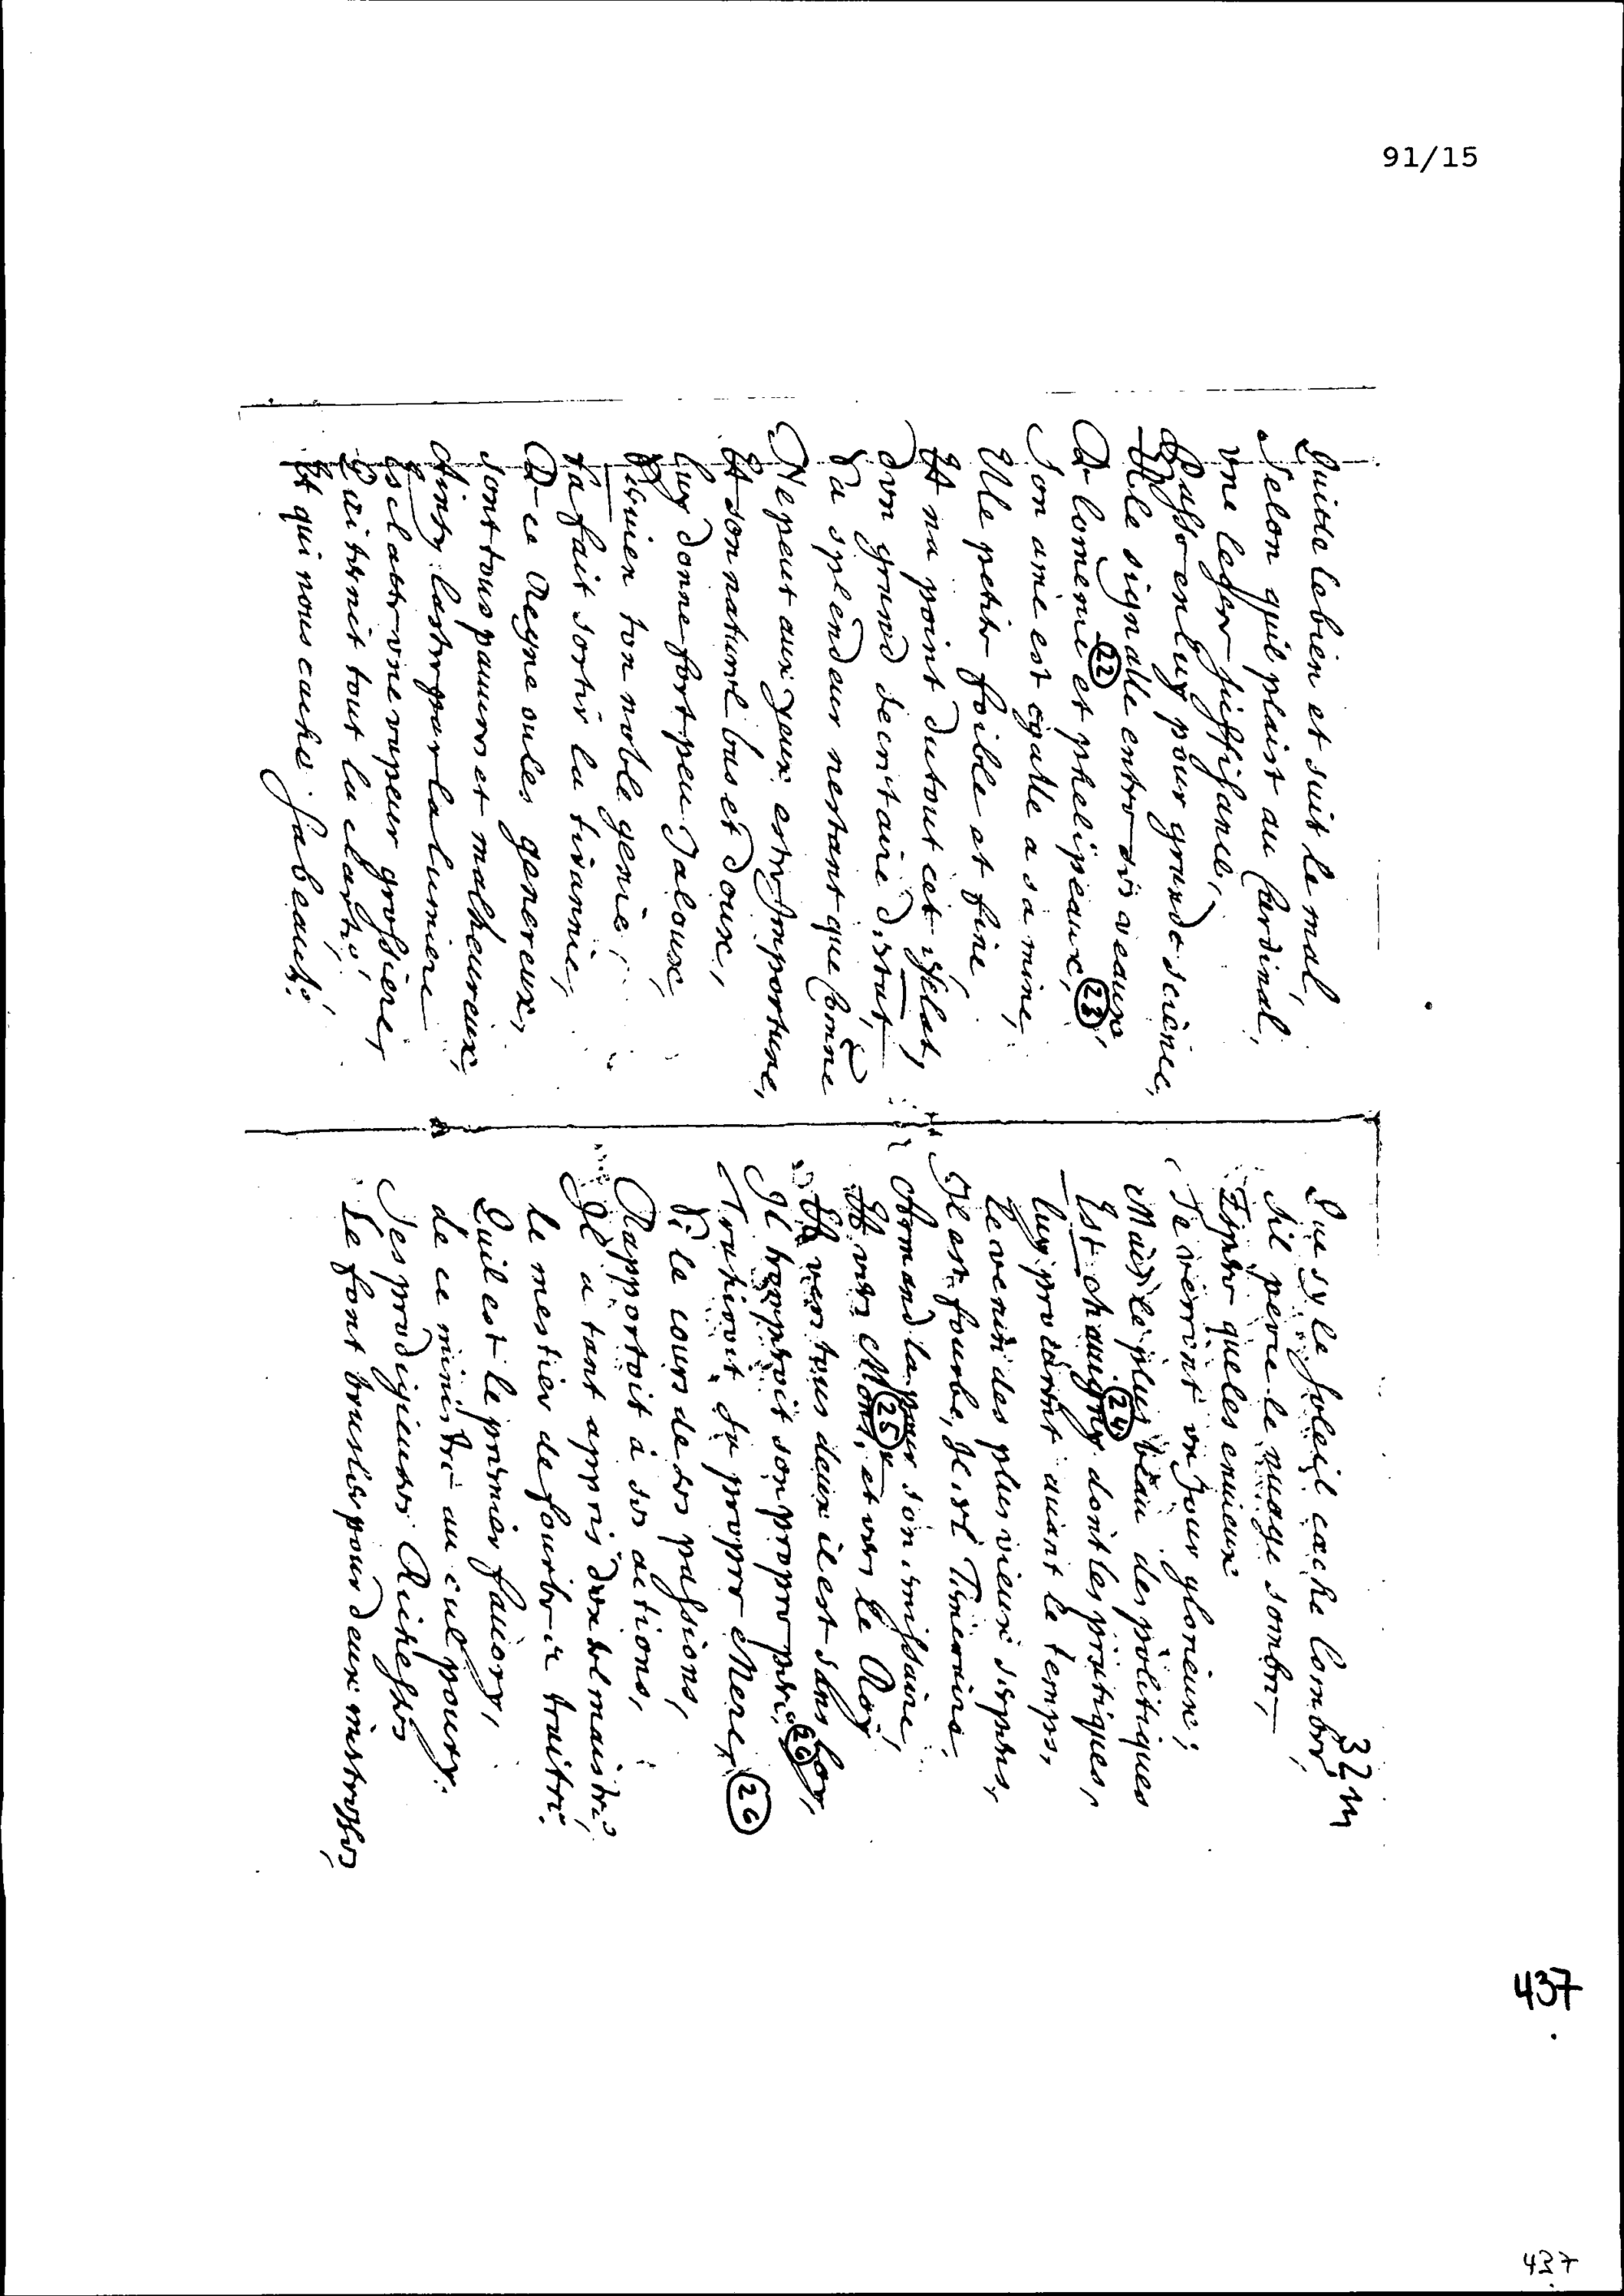 91/15
Quitte le bien et suit le mal,
Selon quil plaist au Cardinal,
vne legere suffisance,
Passe en luy pour grande science,
Il le signalle entre dix veaux
De lomenie 22 et phelipeaux, 23
Son ame est egalle a sa mine,
Elle petite foible et fine
Et na point du tout cet esclat,
dvn grand secretaire distat,
Sa splendeur nestant que comme
Ne peut aux yeux estre Jnportune,
Et son naturel bas et doux,
luy donne fort peu Jaloux,
ton noble genie,
ta fait sortir la tirannie,
De ce Regne ou les genereux,
sont tous pauures et malheureux,
Ainsy lastre par la lumiere
Esclatte vne vapeur grossiere,
Qui ternit tout la clarté,
Et qui nous cache sa beauté.
32
Que sy le soleil cache lombre,
Sil perce le nuage sombre,
Espere que les enuieux
Te verront vn Jour glorieux;
Mais le plus beau des politiques
Est chauigny 24 dont les pratiques,
luy procurent auant le temps,
le venin des plus vieux serpens,
Il est fourbe, Il est Temeraire,
Armand la pour son emissaire,
Et vers Mons. 25 et vers le Roy,
Et vers tous deux il est sans foy,
Il tromperoit son propre pere, 26
Trahiroit sa propre Mere, 26
Si le cours de ses passions,
Rapportoit à ses actions,
Il a tant appris de tel maistre,
le mestier de fourbe et traitre,
Quil est le premier fauory,
de ce ministre au cul poury.
Ses prodigieuses Richesses
Le font brusler pour deux mestresses,
437
437